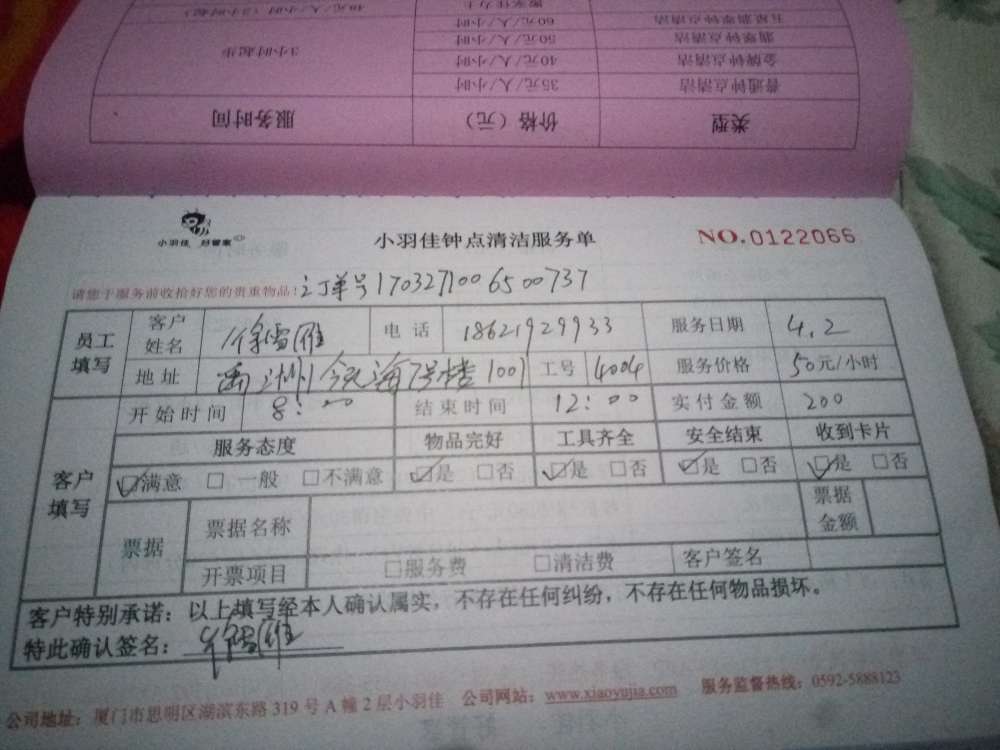 搬家佳力士 40元/人/小时 (2小时起)
五星翡翠钟点清洁 60元/人/小时
翡翠钟点清洁 50元/人/小时
金牌钟点清洁 40元/人/小时 3小时起步
普通钟点清洁 35元/人/小时
类型 价格(元) 服务时间
小羽佳 好管家
小羽佳钟点清洁服务单
NO.0122066
请您于服务前收拾好您的贵重物品: 订单号1703271006500737
员工填写 客户姓名 徐雪雁 电话 18621929933 服务日期 4.2
地址 禹洲今天海7号楼1007 工号 4004 服务价格 50元/小时
客户填写 开始时间 8:00 结束时间 12:00 实付金额 200
服务态度 物品完好 工具齐全 安全结束 收到卡片
☑满意 □一般 □不满意 ☑是 □否 ☑是 □否 ☑是 □否 ☑是 □否
票据 票据名称 票据金额
开票项目 □服务费 □清洁费 客户签名
客户特别承诺:以上填写经本人确认属实,不存在任何纠纷,不存在任何物品损坏。
特此确认签名: 徐雪雁
公司地址:厦门市思明区湖滨东路319号A幢2层小羽佳 公司网站:www.xiaoyujia.com 服务监督热线:0592-5888123